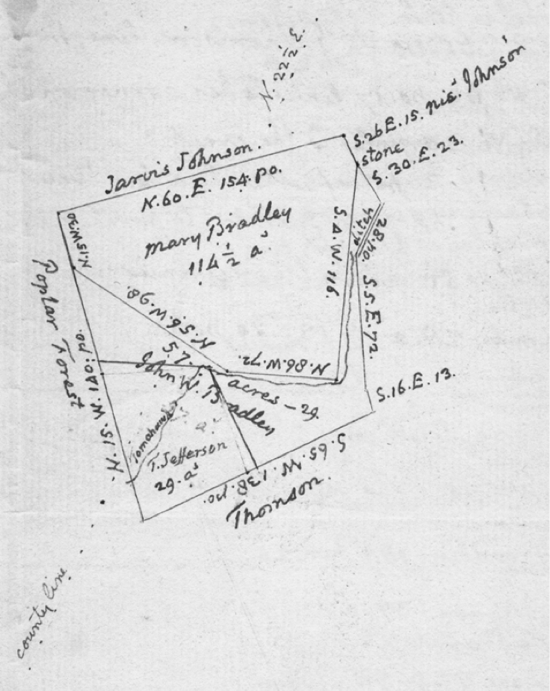 N. 22½ E.
S.26E.15. nié. Johnson
stone
S.30.E.23.
Jarvis Johnson.
N.60.E. 154.po.
N.15W.30
mary Bradley
114 ½ aˢ
S.4.W.116.
ditch
po.82
S.5.E.72.
Poplar Forest
N.56.W.98.
N.86.W.72.
N.15.W.140.po.
57.
acres - 29.
John W. Bradley
S.16.E.13.
Tomahawk
T. Jefferson
29.aˢ
S.65.W.138.po.
Thomson.
county line